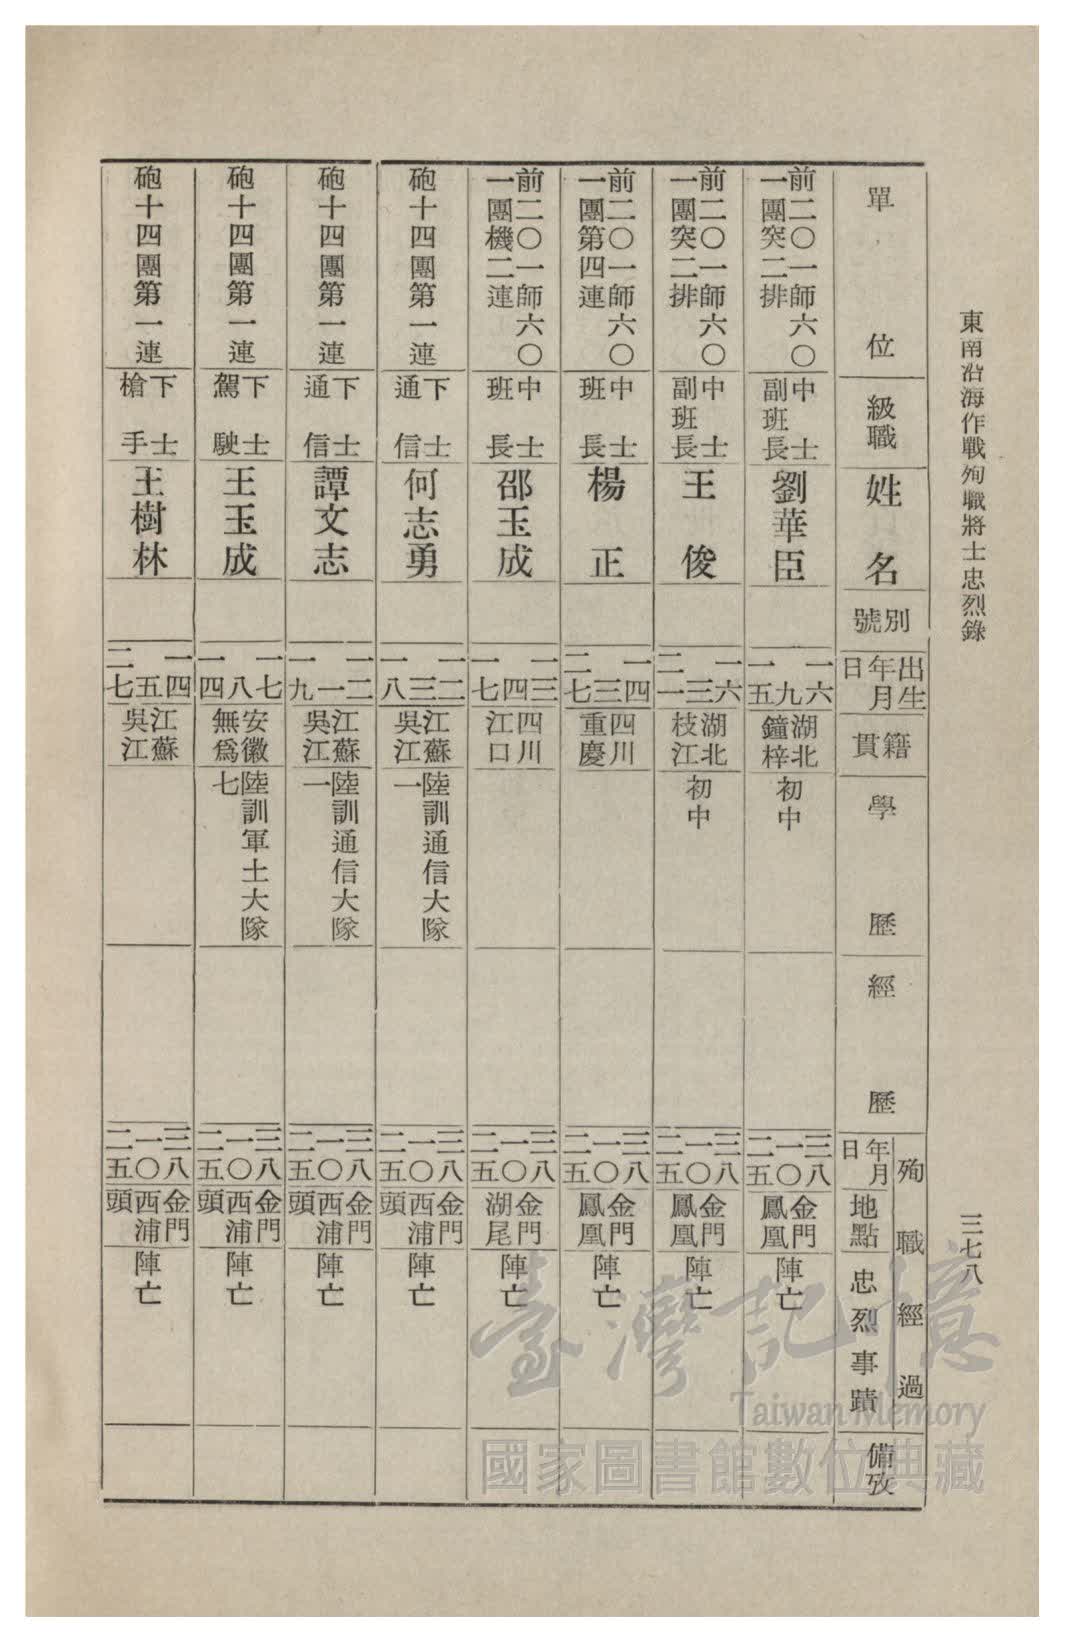 東南沿海作戰殉職將士忠烈錄
三七八
單位
級職
姓名
別號
出生
年月
日
籍貫
學歷
經歷
殉職經過
年月
日
地點
忠烈事蹟
備攷
前二〇一師六〇
一團突二排
中士
副班長
劉華臣
一六
九
一五
湖北
鐘梓
初中
三八
一〇
二五
金門
鳳凰
陣亡
前二〇一師六〇
一團突二排
中士
副班長
王俊
一六
三
二一
湖北
枝江
初中
三八
一〇
二五
金門
鳳凰
陣亡
前二〇一師六〇
一團第四連
中士
班長
楊正
一四
三
二七
四川
重慶
三八
一〇
二五
金門
鳳凰
陣亡
前二〇一師六〇
一團機二連
中士
班長
邵玉成
一三
四
一七
四川
江口
三八
一〇
二五
金門
湖尾
陣亡
砲十四團第一連
下士
通信
何志勇
一二
三
一八
江蘇
吳江
陸訓通信大隊
一
三八
一〇
二五
金門
西浦
頭
陣亡
砲十四團第一連
下士
通信
譚文志
一二
一
一九
江蘇
吳江
陸訓通信大隊
一
三八
一〇
二五
金門
西浦
頭
陣亡
砲十四團第一連
下士
駕駛
王玉成
一七
八
一四
安徽
無為
陸訓軍士大隊
七
三八
一〇
二五
金門
西浦
頭
陣亡
砲十四團第一連
下士
槍手
王樹林
一四
五
二七
江蘇
吳江
三八
一〇
二五
金門
西浦
頭
陣亡
臺灣記憶
Taiwan Memory
國家圖書館數位典藏